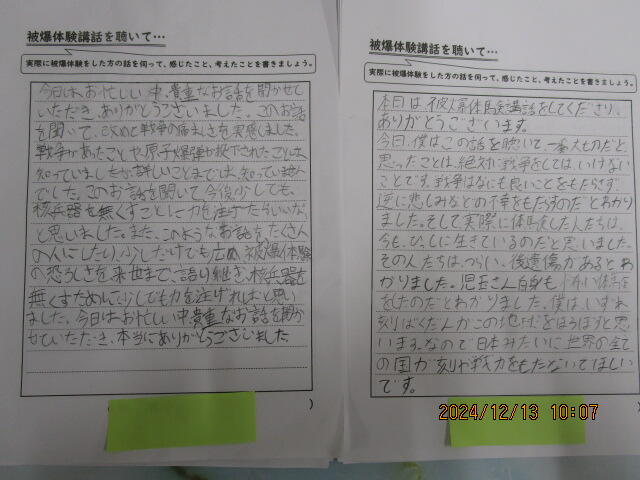 被爆体験講話を聴いて…
実際に被爆体験をした方の話を伺って、感じたこと、考えたことを書きましょう。
今日は、お忙しい中、貴重なお話を聞かせて
いただき、ありがとうございました。このお話
を聞いて、改めて戦争の痛ましさを実感しました。
戦争があったことや原子爆弾が投下されたことは、
知っていましたが、詳しいことまでは、知っていませ
んでした。このお話を聞いて、今後少しでも、
核兵器を無くすことに力を注げたらいいな
と思いました。また、このようなお話を、たくさん
の人にしたり、少しだけでも広め、被爆体験
の恐ろしさを来世まで、語り継ぎ、核兵器を
無くすために少しでも力を注げればと思い
ました。今日はお忙しい中、貴重なお話を聞か
せていただき、本当にありがとうございました。
)
被爆体験講話を聴いて…
実際に被爆体験をした方の話を伺って、感じたこと、考えたことを書きましょう。
本日は被爆体験講話をしてくださり、
ありがとうございます。
今日、僕はこの話を聴いて、一番大切だと
思ったことは、絶対に戦争をしては、いけない
ことです。戦争はなにも良いことをもたらさず
逆に悲しみなどの不幸をもたらすのだとわかり
ました。そして実際に体験した人たちは、
今も、ひっしに生きているのだと思いました。
その人たちは、つらい、後遺傷があるとわ
かりました。児玉さん自身も 体験
をしたのだとわかりました。僕は、いずれ
かくばくだんがこの地球をほろぼすと思
います。なので日本みたいに世界の全て
の国が 戦力をもたないでほしい
です。
)
2024/12/13 10:07